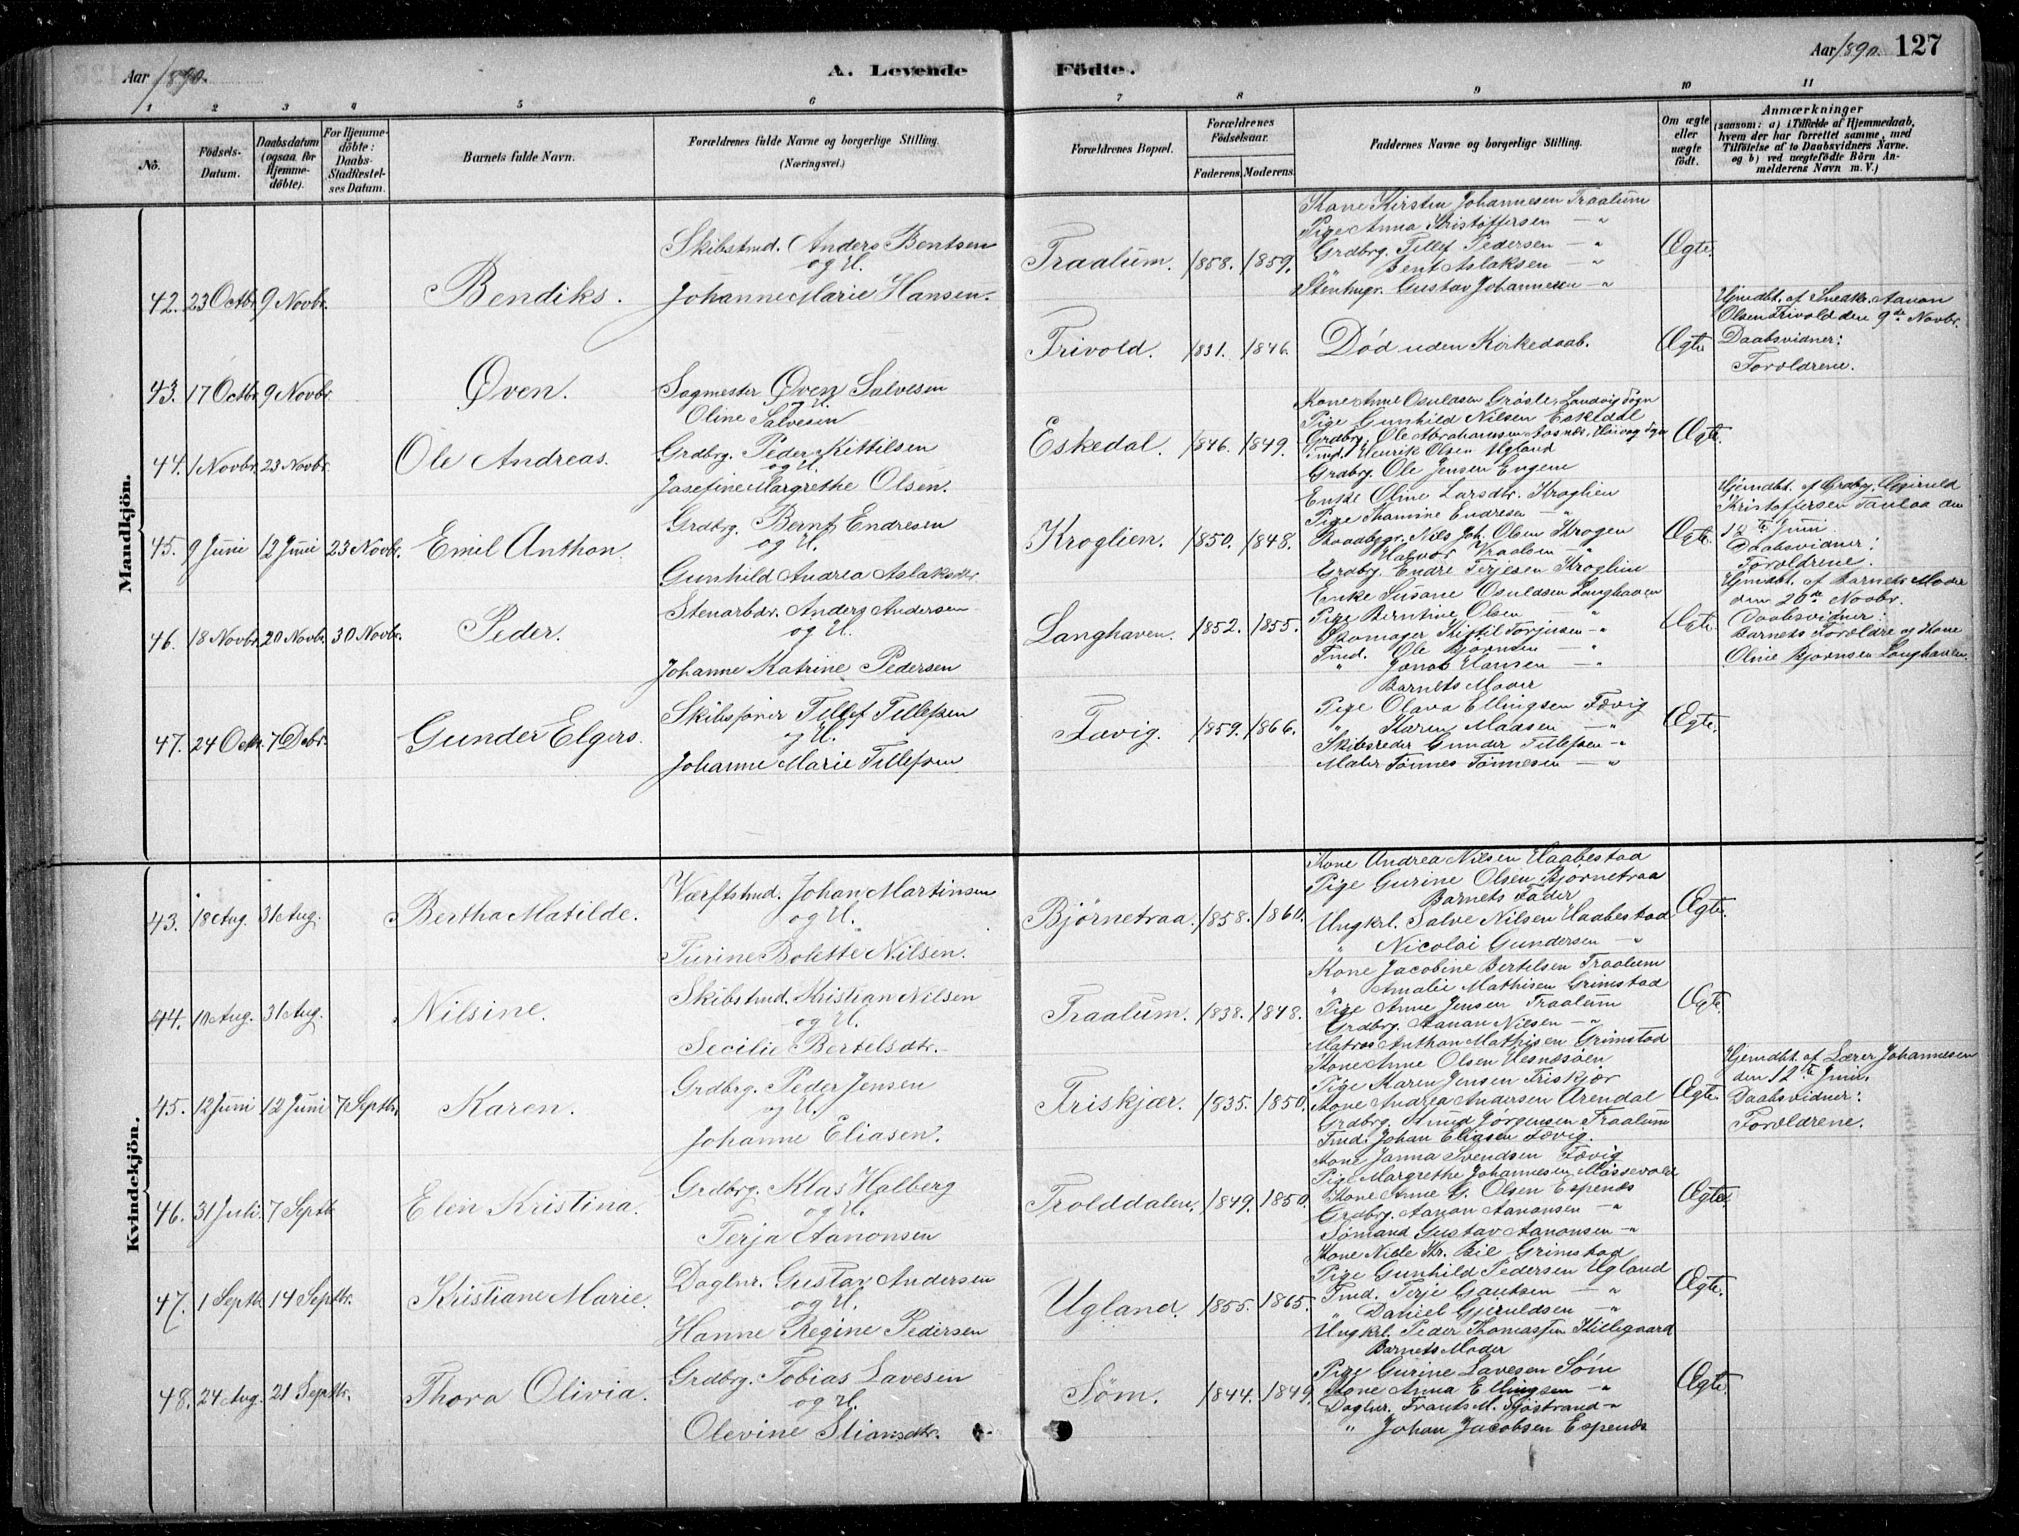 Aar 1890.
A. Levende
Födte.
Aar 1890. 127
1 2 3 4 5 6 7 8 9 10 11
No.
Födsels-Datum.
Daabsdatum (ogsaa for Hjemmedöbte).
For Hjemmedöbte: Daabs-Stadfæstelses Datum.
Barnets fulde Navn.
Forældrenes fulde Navne og borgerlige Stilling. (Næringsvei.)
Forældrenes Bopæl.
Forældrenes Födselsaar.
Faderens. Moderens.
Faddernes Navne og borgerlige Stilling.
Om ægte eller uægte födt.
Anmærkninger
(saasom: a) i Tilfælde af Hjemmedaab, hvem der har forrettet samme, med Tilföielse af to Daabsvidners Navne. og b) ved uægtefödte Börn Anmelderens Navn m. V.)
Mandkjön.
42. 23 Octbr. 9 Novbr. Bendiks.
Skibstmd. Anders Bentsen
og H.
Johanne Marie Hansen.
Traalum. 1858. 1859.
Kone Kirsten Johannesen Traalum
Pige Anna Kristoffersen — "
Grdbrg. Tellef Pedersen — "
Bent Aslaksen — "
Stenhugr. Gustav Johannesen — "
Ægte.
43. 17 Octbr. 9 Novbr. Øven.
Sagmester Øven Salvesen
og H.
Oline Salvesen
Frivold. 1831. 1846.
Død uden Kirkedaab.
Ægte
Hjmdbt. af Snedkr. Aanon
Olsen Frivold den 9de Novbr.
Daabsvidner:
Forældrene.
44. 1 Novbr. 23 Novbr. Ole Andreas.
Grdbrg. Peder Kittilsen
og H.
Josefine Margrethe Olsen.
Eskedal. 1846. 1849.
Kone Anne Osuldsen Grosle, Landvig Sogn
Pige Gunhild Nilsen Eskedal
Grdbrg. Ole Abrahamsen
Tmd. Henrik Olsen Ugland
Grdbrg. Ole Jensen Engene
Ægte.
45. 9 Juni 12 Juni 23 Novbr. Emil Anthon.
Grdbrg. Bernt Endresen
og H.
Gunhild Andrea Aslaksdtr.
Kroglien. 1850. 1848.
Enke Oline Larsdtr. Kroglien
Pige Thamine Endresen "
Nils Joh. Olsen Krogen
Halvor Kraalsen "
Grdbrg. Endre Terjesen Kroglien
Ægte.
Hjemdbt. af Grdbrg.
Kristoffersen Taulaa den
12te Juni
Daabsvidner:
Forældrene.
46. 18 Novbr. 20 Novbr. 30 Novbr. Peder.
Stenarbdr. Anders Andersen
og H.
Johanne Katrine Pedersen
Langhaven. 1852. 1855.
Enke Susane Osuldsen Langhaven
Pige Berntine Olsen "
Skomager Kittil Torjusen — "
Tmd. Ole Bjornsen — "
" Jonas Hansen — "
Barnets Moder
Ægte.
Hjmdbt. af Barnets Moder
den 20de Novbr.
Daabsvidner:
Barnets Forældre og Kone
Oline Bjornsen Langhaven.
47. 24 Octbr. 7 Decbr. Gunder Elgers.
Skibsfører Tellef Tellefsen
og H.
Johanne Marie Tellefsen
Fævig. 1859. 1866.
Pige Olava Ellingsen Fævig
" Karen Maasen — "
Skibsreder Gunder Tellefsen — "
Maler Tønnes Tønnesen — "
Ægte.
Kvindekjön.
43. 18 Aug. 31 Aug. Bertha Matilde.
Værftstmd. Johan Martinsen
og H.
Turine Bolette Nilsen.
Bjørnetraa. 1858. 1860.
Kone Andrea Nilsen Haabestad
Pige Gurine Olsen Bjornetraa
Barnets Fader
Ungkrl. Salve Nilsen Haabestad
" Nicolai Gundersen — "
Ægte.
44. 10 Aug. 31 Aug. Nilsine.
Skibstmd. Kristian Nilsen
og H.
Secilie Bertelsdtr.
Traalum. 1838. 1848.
Kone Jacobine Bertelsen Traalum
" Amalie Mathisen Grimstad
Pige Anne Jensen Traalum
Grdbrg. Aanan Nilsen — "
Matros Anthon Mathisen Grimstad
Ægte.
45. 12 Juni 12 Juni 7 Septbr. Karen.
Grdbrg. Peder Jensen
og H.
Johanne Eliasen.
Friskjær. 1835. 1850.
Kone Anne Olsen Hesnesøen
Pige Karen Jensen Friskjær
Kone Andrea Andersen Arendal
Grdbrg. Knud Jørgensen Traalum
Tmd. Johan Eliasen Fævig.
Ægte.
Hjemdbt. af Lærer Johannesen
den 12te Juni.
Daabsvidner:
Forældrene.
46. 31 Juli. 7 Septb. Elen Kristina.
Grdbrg. Klas Halberg
og H.
Terja Aanonsen
Trolddalen. 1849. 1850.
Kone Janna Svendsen Fævig
Pige Margrethe Johannesen Mossevold
Kone Anne G. Olsen Espenes
Grdbrg. Aanon Aanonsen — "
Sømand Gustav Aanonsen — "
Ægte.
47. 1 Septb. 14 Septbr. Kristiane Marie.
Daglnr. Gustav Andersen
og H.
Hanne Regine Pedersen
Ugland. 1855. 1865.
Kone Nille Kr. Bie Grimstad
Pige Gunhild Pedersen Ugland
Tmd. Terje Gautsen — "
" Daniel Gjeruldsen — "
Ungkrl. Peder Thomassen Killegaard
Barnets Moder
Ægte.
48. 24 Aug. 21 Septbr. Thora Olivia.
Grdbrg. Tobias Lavesen
og H.
Olevine Stiansdtr.
Søm. 1844. 1849.
Pige Gurine Lavesen Søm
Kone Anna Ellingsen — "
Daglnr. Frants M. Sjöstrand — "
" Johan Jacobsen Espenes
Ægte.